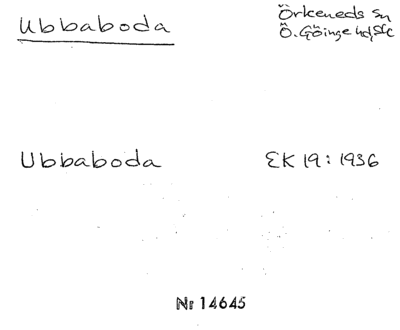 Ubbaboda
Örkeneds sn
Ö. Göinge hd, Sk
Ubbaboda
EK 19: 1936
Nr 14645